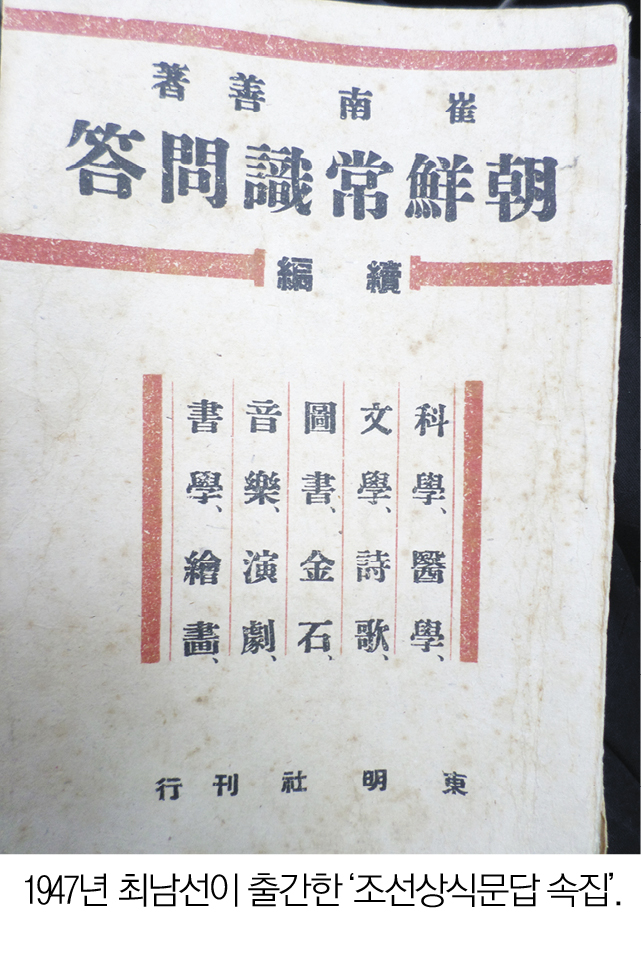 崔南善著
朝鮮常識問答
續編
科學、醫學、
文學、詩歌、
圖書、金石、
音樂、演劇、
書學、繪畵、
東明社刊行
1947년 최남선이 출간한 ‘조선상식문답 속집’.